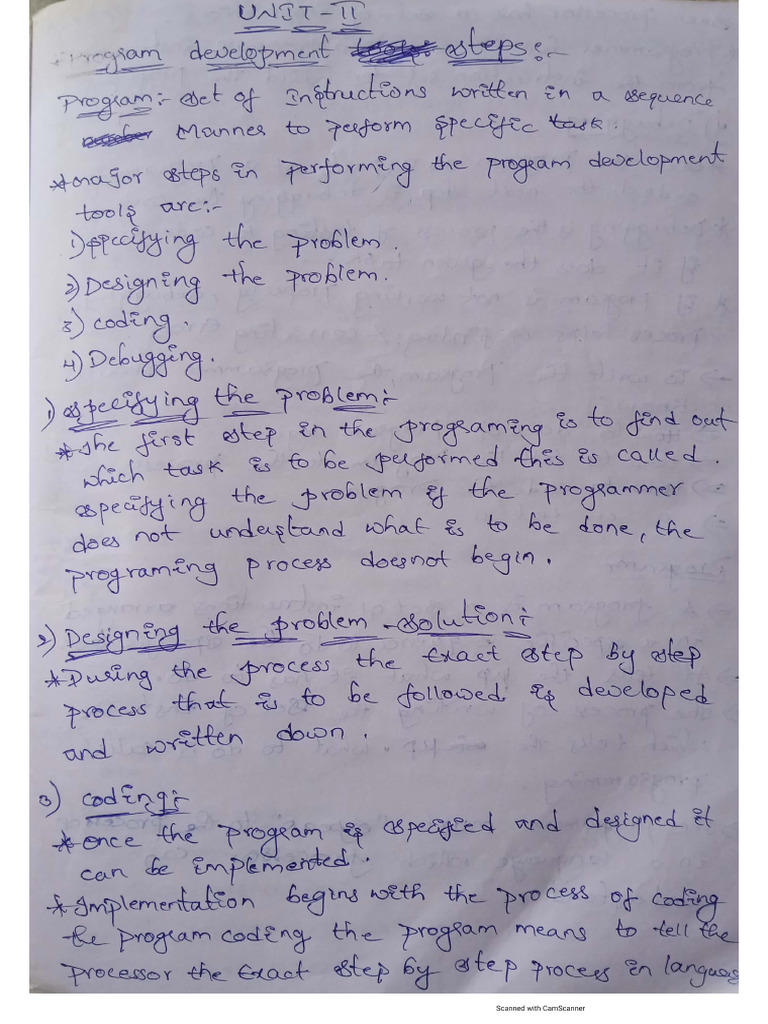 UNIT-II
Program development steps:-
Program:- Set of Instructions written in a sequence
Manner to perform specific task.
*major steps in performing the program development
tools are:-
1) specifying the problem.
2) Designing the problem.
3) coding.
4) Debugging.
1) specifying the problem:-
* The first step in the programing is to find out
which task is to be performed this is called.
specifying the problem if the programmer
does not understand what is to be done, the
programing process doesnot begin.
2) Designing the problem-solution:
* During the process the Exact step by step
process that is to be followed is developed
and written down.
3) coding:-
* once the program is specified and designed it
can be implemented.
* Implementation begins with the process of coding
the program coding the program means to tell the
processor the Exact step by step process in languag
Scanned with CamScanner